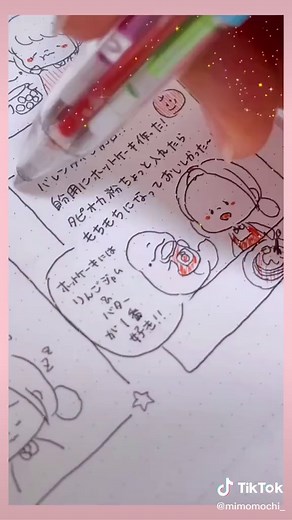 自分用にホットケーキ作った!
タピオカ粉ちょっと入れたら
もちもちになっておいしかったー
ホットケーキには
りんごジャム
&
バター
が1番
好き!!
TikTok
@mimomochi_